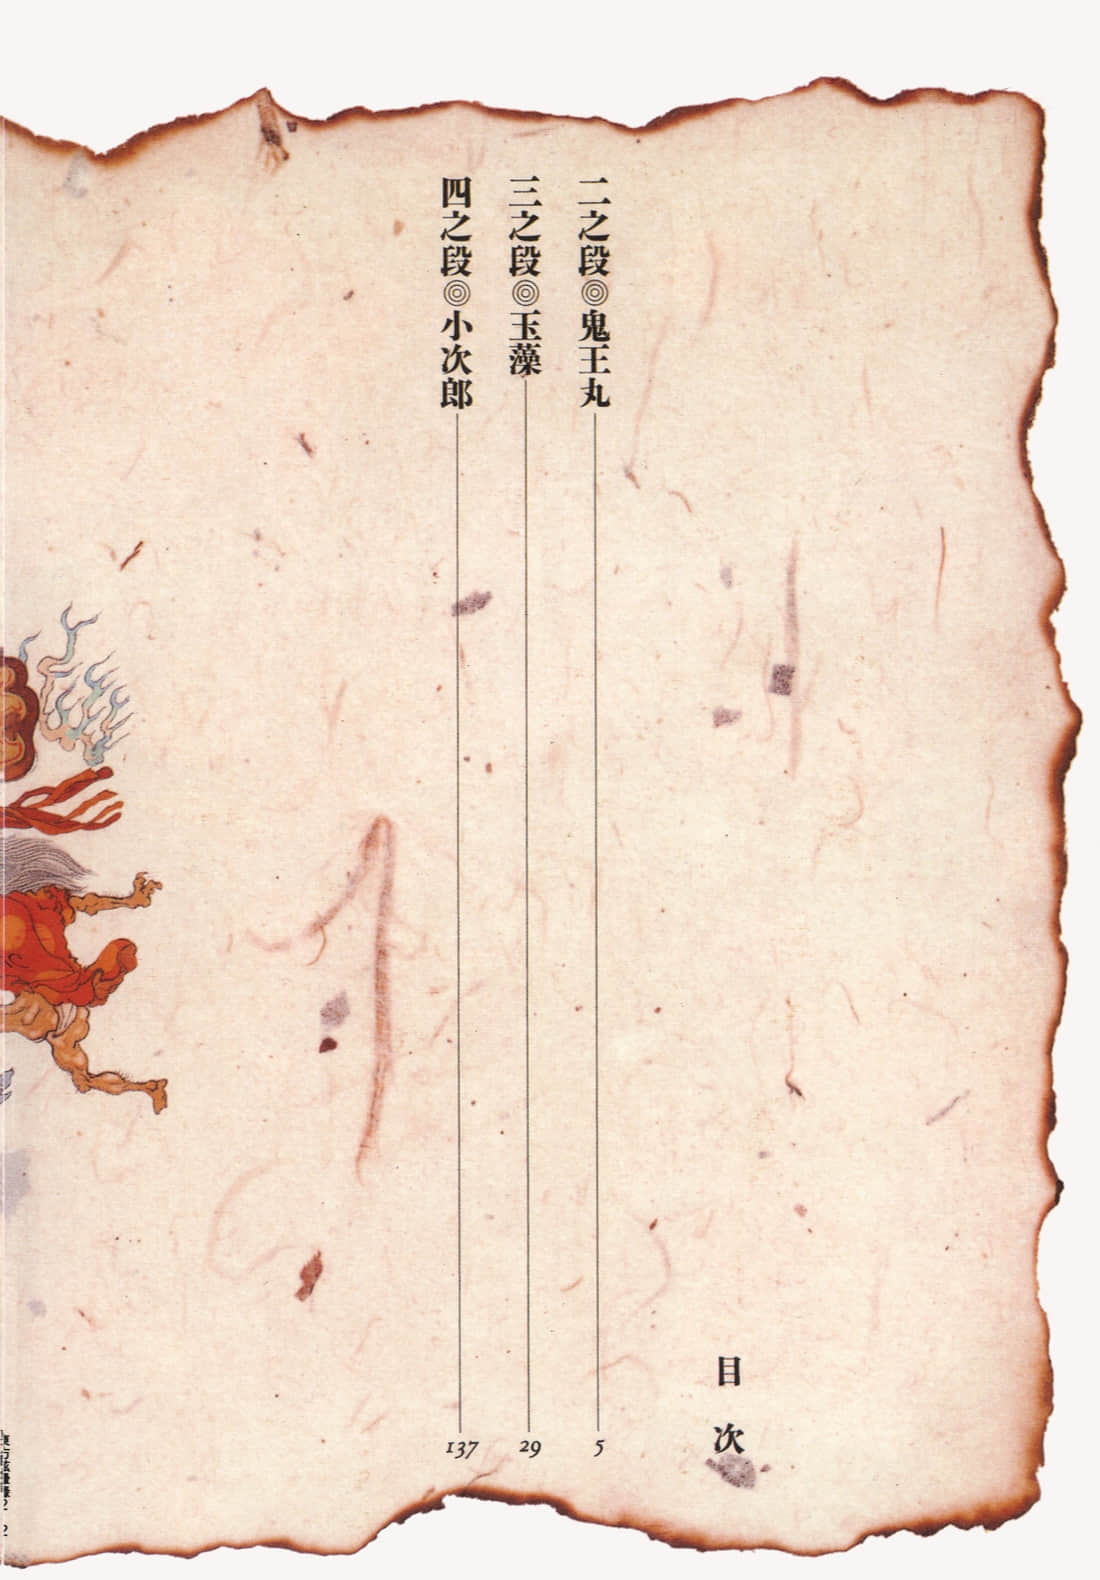 目次
二之段◎鬼王丸 5
三之段◎玉藻 29
四之段◎小次郎 137